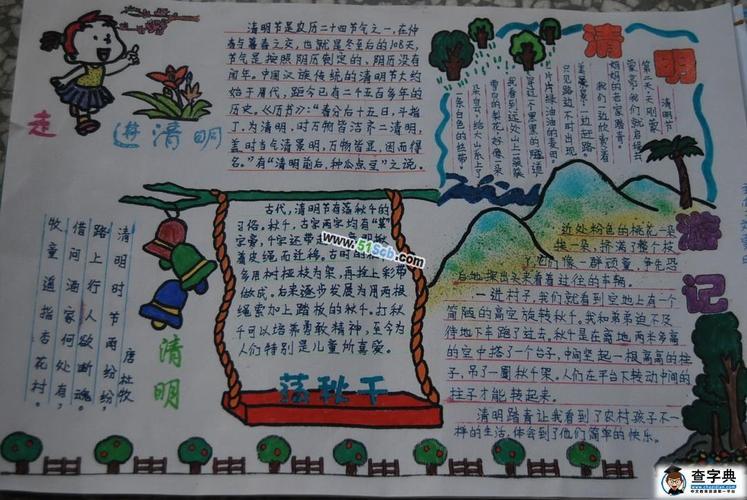 走进清明
清明节是农历二十四节气之一,在仲
春与暮春之交,也就是冬至后的108天。
节气是按照阳历制定的,阴历没有
闰年。中国汉族传统的清明节大约
始于周代,距今已有二千五百多年的
历史。《历书》:"春分后十五日,斗指
丁,为清明,时万物皆洁齐二清明,
盖时当气清景明,万物皆显,因而得
名。"有"清明前后,种瓜点豆"之说。
清明
游记
清明节
第二天,天刚蒙
蒙亮,我们就启程去
妈妈的老家踏青。
我们一边欣赏着
美景,一边赶路。
只见路边不时出现
片片绿油油的麦田。
穿过一个黑黑的隧道
我看到远处山上一簇簇
雪白的梨花,好像一朵
朵白云,给大山系上了
一条白色的丝带。
近处粉色的桃花一朵
挨一朵,挤满了整个枝
它们像一群顽童,争先恐
后地探出头来看着过往的车辆。
一进村子,我们就看到空地上有个
简陋的高空旋转秋千。我和弟弟迫不及
待地下车跑了过去。秋千是在离地两米多高
的空中搭了个台子,中间竖起一根高高的柱
子,吊了一圈秋千架。人们在平台下转动中间的
柱子才能转起来。
清明踏青让我看到了农村孩子不一
样的生活,体会到了他们简单的快乐。
古代,清明节有荡秋千的
习俗。秋千,古字两字均有"革"
字旁,千字还带走
着皮绳而迁移。古时的
多用树桠枝为架,再拴上彩带
做成。后来逐步发展为用两根
绳索加上踏板的秋千。打秋
千可以培养勇敢精神,至今为
人们特别是儿童所喜爱。
荡秋千
清明
唐 杜牧
清明时节雨纷纷,
路上行人欲断魂。
借问酒家何处有,
牧童遥指杏花村。
www.51Scb.com
查字典